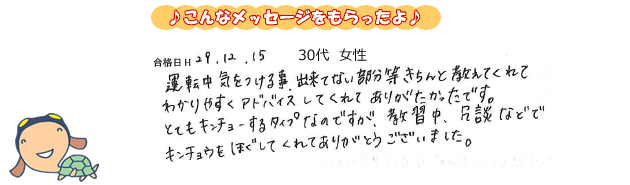 ♪こんなメッセージをもらったよ♪
合格日H 29.12.15 30代 女性
運転中気をつける事、出来てない部分等きちんと教えてくれて
わかりやすくアドバイスしてくれてありがたかったです。
とてもキンチョーするタイプなのですが、教習中、冗談などで
キンチョウをほぐしてくれてありがとうございました。